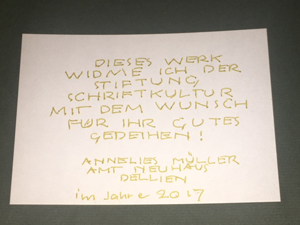 DIESES WERK
WIDME ICH DER
STIFTUNG
SCHRIFTKULTUR
MIT DEM WUNSCH
FÜR IHR GUTES
GEDEIHEN!
ANNELIES MÜLLER
AMT NEUHAUS
DELLIEN
im Jahre 2017